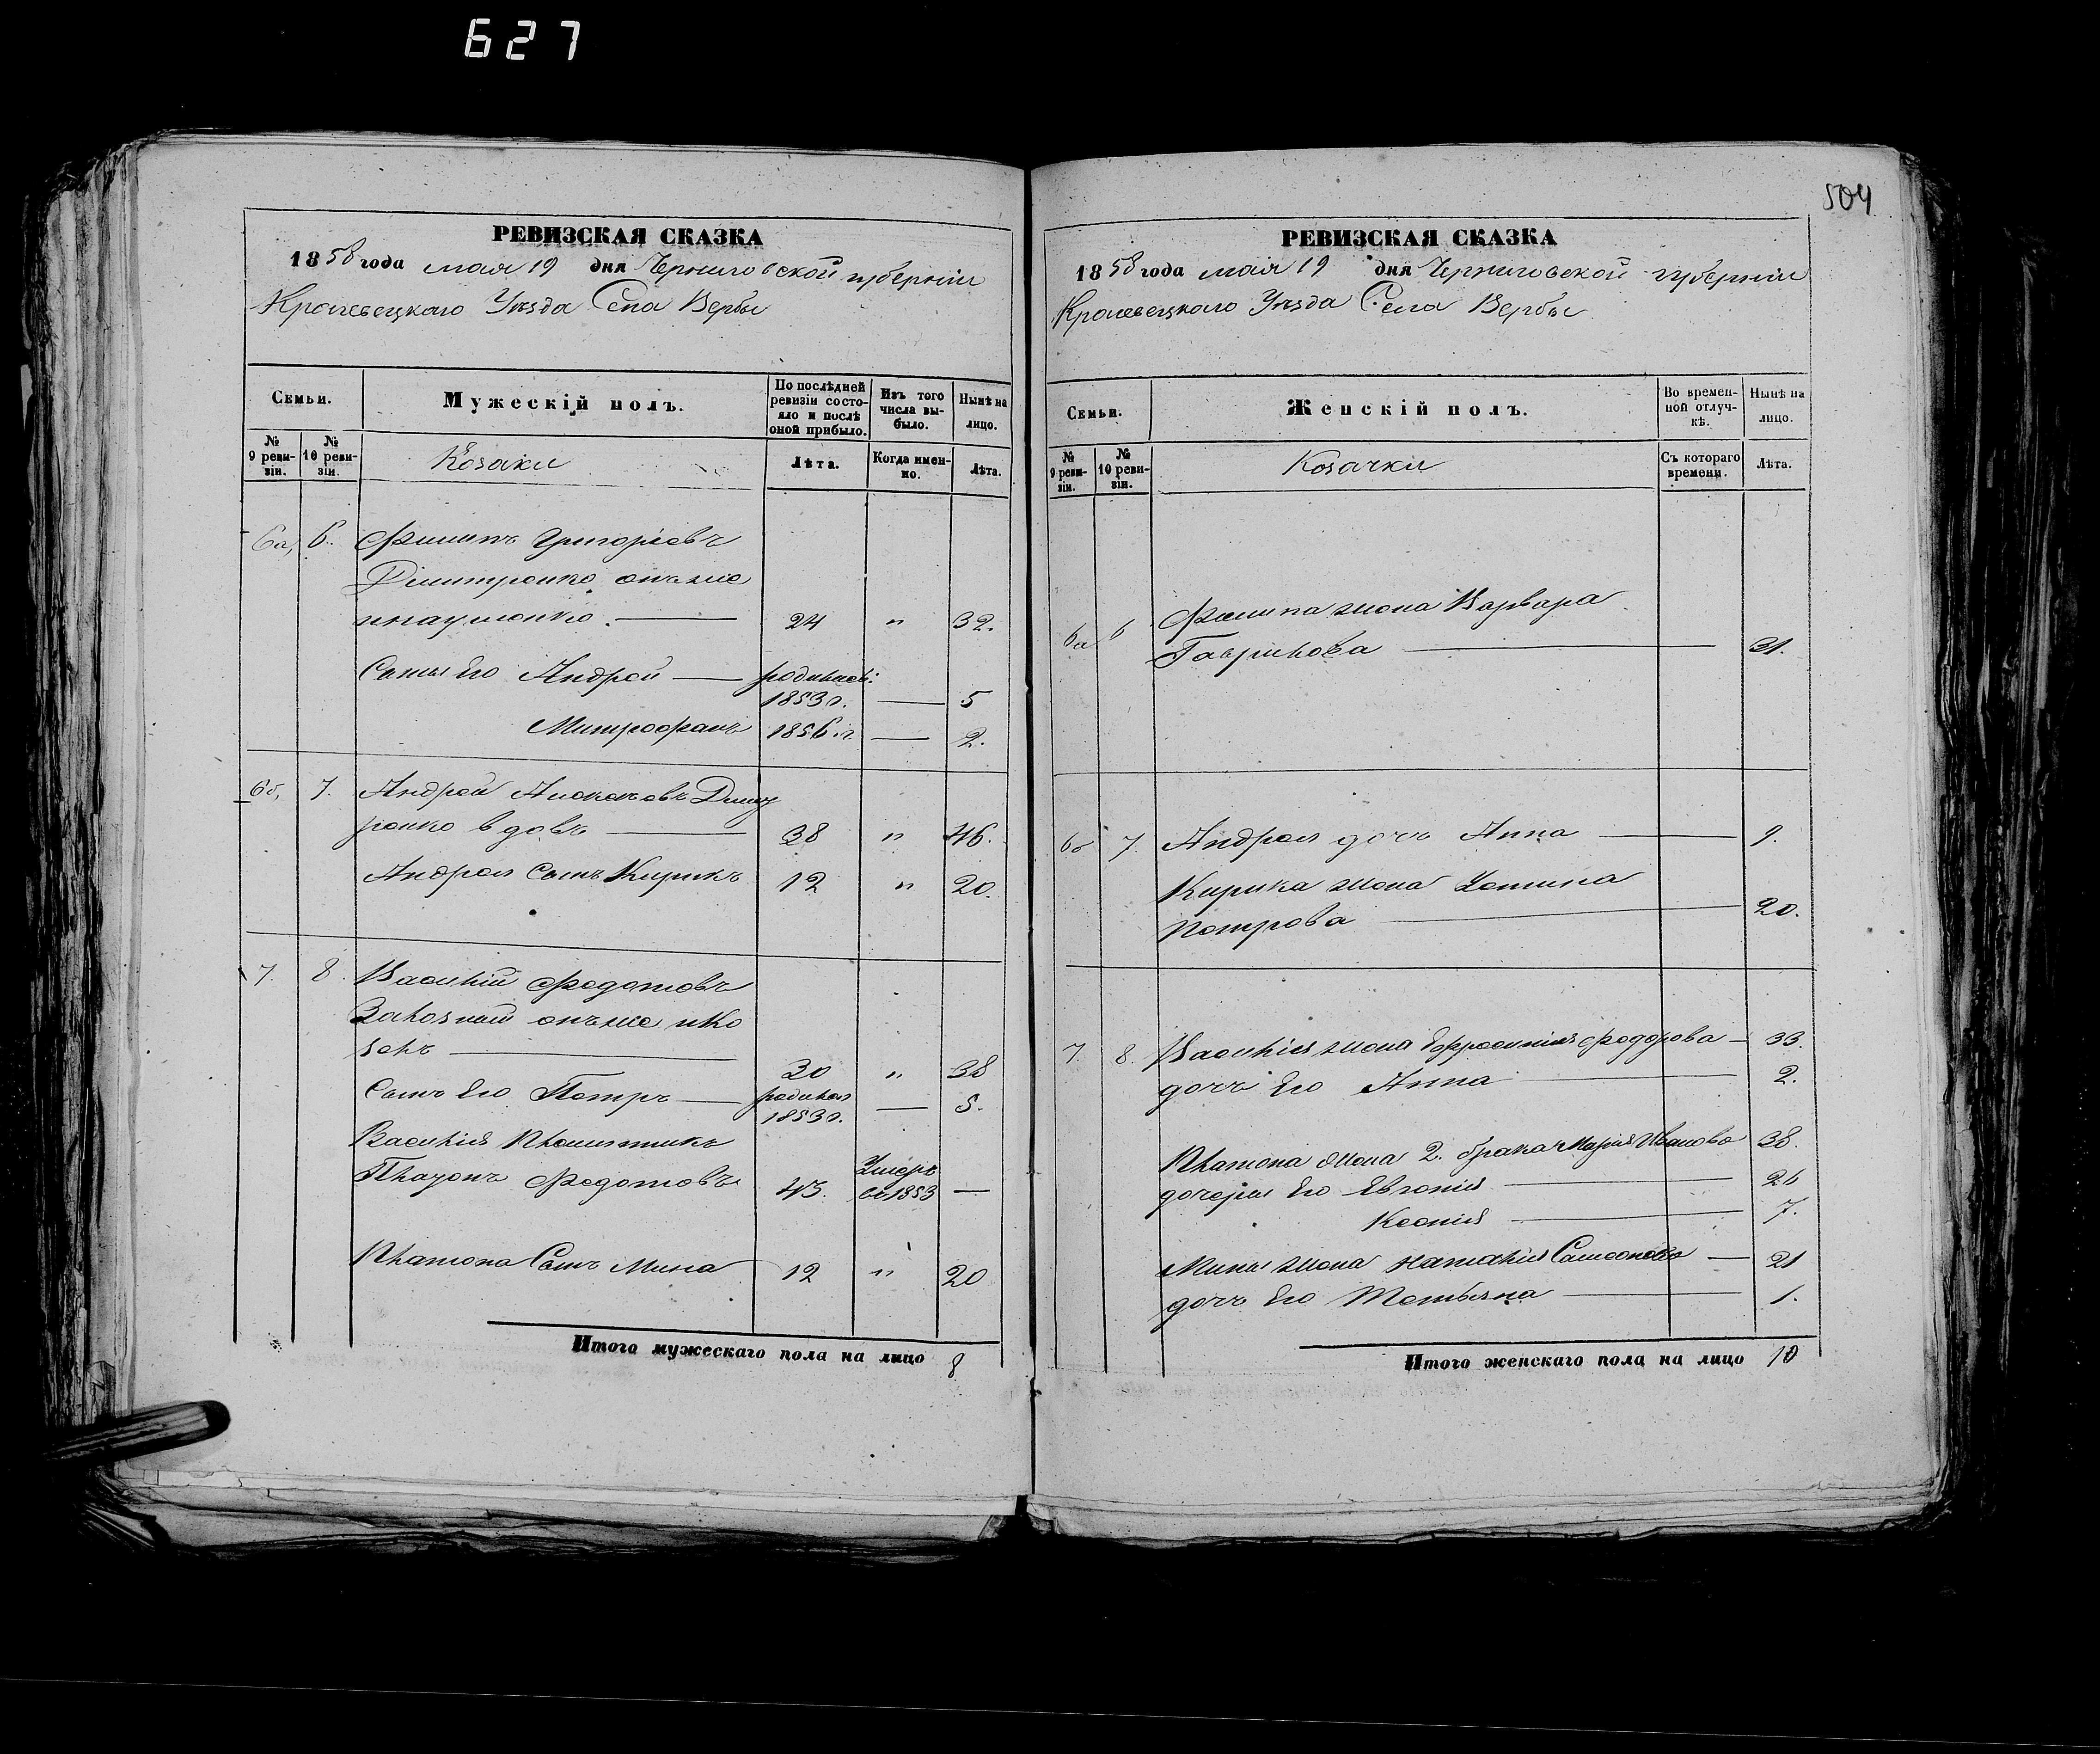 627
504
РЕВИЗСКАЯ СКАЗКА
1858 года мая 19 дня Черниговской губерніи
Кролевецкаго Уѣзда Села Вербы
Семьи.
Мужескій полъ.
По послѣдней ревизіи состояло и послѣ оной прибыло.
Изъ того числа выбыло.
Нынѣ на лицо.
№ 9 ревизіи.
№ 10 ревизіи.
Козаки
Лѣта.
Когда именно.
Лѣта.
6а, 6. Филипъ Григоріевъ
Димитренко онъ же
Игнаушенко. 24 " 32.
Сыны Его Андрей родился:
1853г. — 5
Митрофанъ 1856.г. — 2.
6б, 7. Андрей Димт
ренко вдовъ 38 " 46.
Андрея Сынъ Кирикъ 12 " 20.
7. 8. Василій Федотовъ
онъ же
30 " 38
Сынъ Его Петръ родился
1853г. — 5.
Василія Племянникъ
Платонъ Федотовъ 45. Умеръ въ 1853 —
Платона Сынъ Мина 12 " 20
Итого мужескаго пола на лицо 8
РЕВИЗСКАЯ СКАЗКА
1858 года мая 19 дня Черниговской губерніи
Кролевецкаго Уѣзда Села Вербы
Семьи.
Женскій полъ.
Во временной отлучкѣ.
Нынѣ на лицо.
№ 9 ревизіи.
№ 10 ревизіи.
Козачки
Съ котораго времени.
Лѣта.
6а 6 Филипа жена Варвара
Гаврилова 31.
6б 7. Андрея дочь Анна 9.
Кирика жена Устина
Петрова 20.
7. 8. Василія жена Ефросинія Федорова 33.
дочь Его Анна 2.
Платона жена 2. брака Марія Иванова 38.
дочери Его Евгенія 26
Ксенія 7.
Мины жена Наталія Самсонова 21
дочь Его Татьяна 1.
Итого женскаго пола на лицо 10